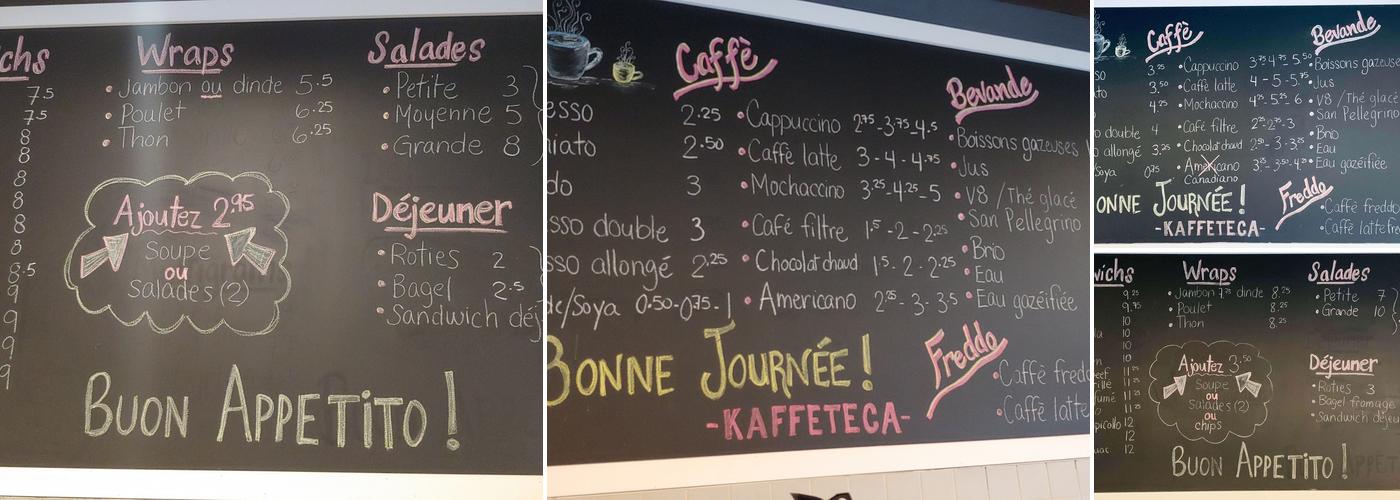 chs
7.5
7.5
8
8
8
8
8
8
8.5
9
9
9
9
Wraps
• Jambon ou dinde 5.5
• Poulet 6.25
• Thon 6.25
Salades
• Petite 3
• Moyenne 5
• Grande 8
Ajoutez 2.95
Soupe
ou
Salades (2)
Déjeuner
• Roties 2
• Bagel 2.5
• Sandwich déj
BUON APPETITO!
Caffè
esso 2.25
iato 2.50
do 3
sso double 3
sso allongé 2.25
/Soya 0.50-0.75-1
• Cappuccino 2.75-3.75-4.5
• Caffè latte 3-4-4.75
• Mochaccino 3.25-4.25-5
• Café filtre 1.5-2-2.25
• Chocolat chaud 1.5-2-2.25
• Americano 2.25-3-3.5
Bevande
• Boissons gazeuses
• Jus
• V8 / Thé glacé
• San Pellegrino
• Brio
• Eau
• Eau gazéifiée
BONNE JOURNÉE!
-KAFFETECA-
Freddo
• Caffè fredd
• Caffè latte
Caffè
3.25
3.50
4.25
double 4
allongé 3.25
Soya 0.75
• Cappuccino 3.75 4.75 5.50
• Caffè latte 4-5-5.75
• Mochaccino 4.25-5.25 6
• Café filtre
• Chocolat chaud
• Americano
Canadiano
Bevande
• Boissons gazeuse
• Jus
• V8 / Thé glacé
• San Pellegrino
• Brio
• Eau
• Eau gazéifiée
ONNE JOURNÉE!
-KAFFETECA-
Freddo
• Caffè freddo
• Caffè latte fre
wichs
9.25
9.75
10
10
10
12
12
12
Wraps
• Jambon dinde 8.25
• Poulet 8.25
• Thon 8.25
Salades
• Petite 7
• Grande 10
Ajoutez 3.50
Soupe
ou
Salades (2)
ou
chips
Déjeuner
• Roties 3
• Bagel fromage
• Sandwich déjeu
BUON APPETITO!